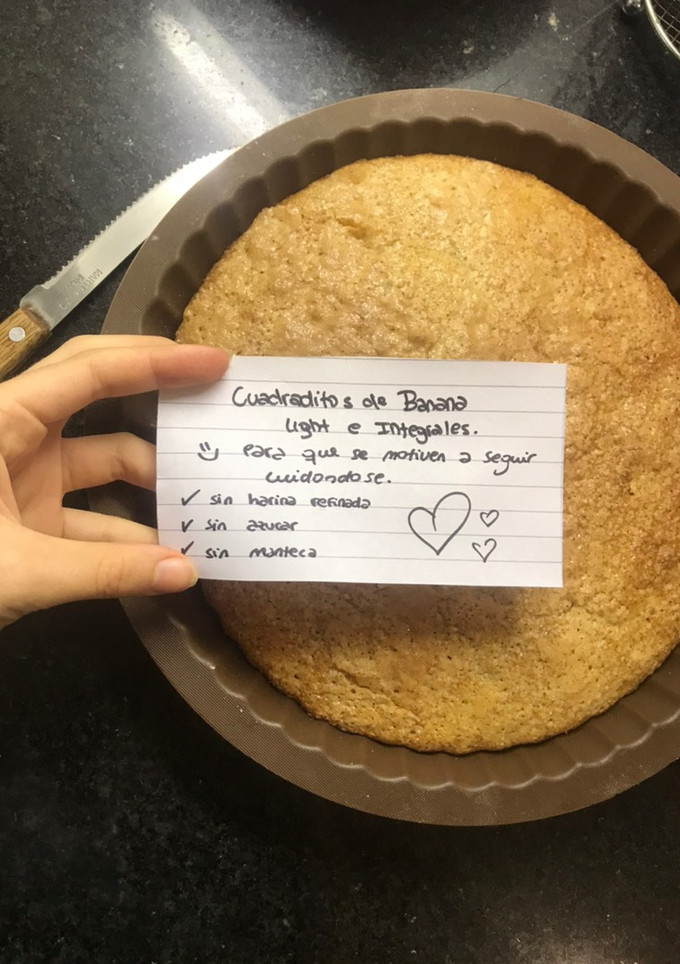 Cuadraditos de Banana
light e Integrales.
Para que se motiven a seguir
cuidandose.
✓ sin harina refinada
✓ sin azucar
✓ sin manteca